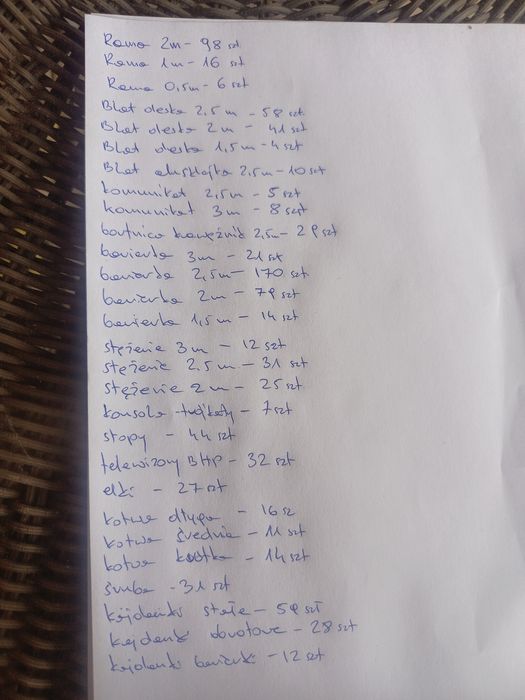 Rama 2m - 98 szt
Rama 1m - 16 szt
Rama 0,5m - 6 szt
Blat deska 2,5m - 58 szt
Blat deska 2m - 41 szt
Blat deska 1,5m - 4 szt
Blat sklejka 2,5m - 10 szt
komunikat 2,5m - 5 szt
komunikat 3m - 8 szt
bortnica 2,5m - 29 szt
barierka 3m - 21 szt
barierka 2,5m - 170 szt
barierka 2m - 79 szt
barierka 1,5m - 14 szt
stężenie 3m - 12 szt
stężenie 2,5m - 31 szt
stężenie 2m - 25 szt
konsola trójkąty - 7 szt
stopy - 44 szt
telewizory BHP - 32 szt
elki - 27 szt
kotwa długa - 16 sz
kotwa średnia - 11 szt
kotwa krótka - 14 szt
śruba - 31 szt
kajdanki stałe - 59 szt
kajdanki obrotowe - 28 szt
kajdanki barierki - 12 szt